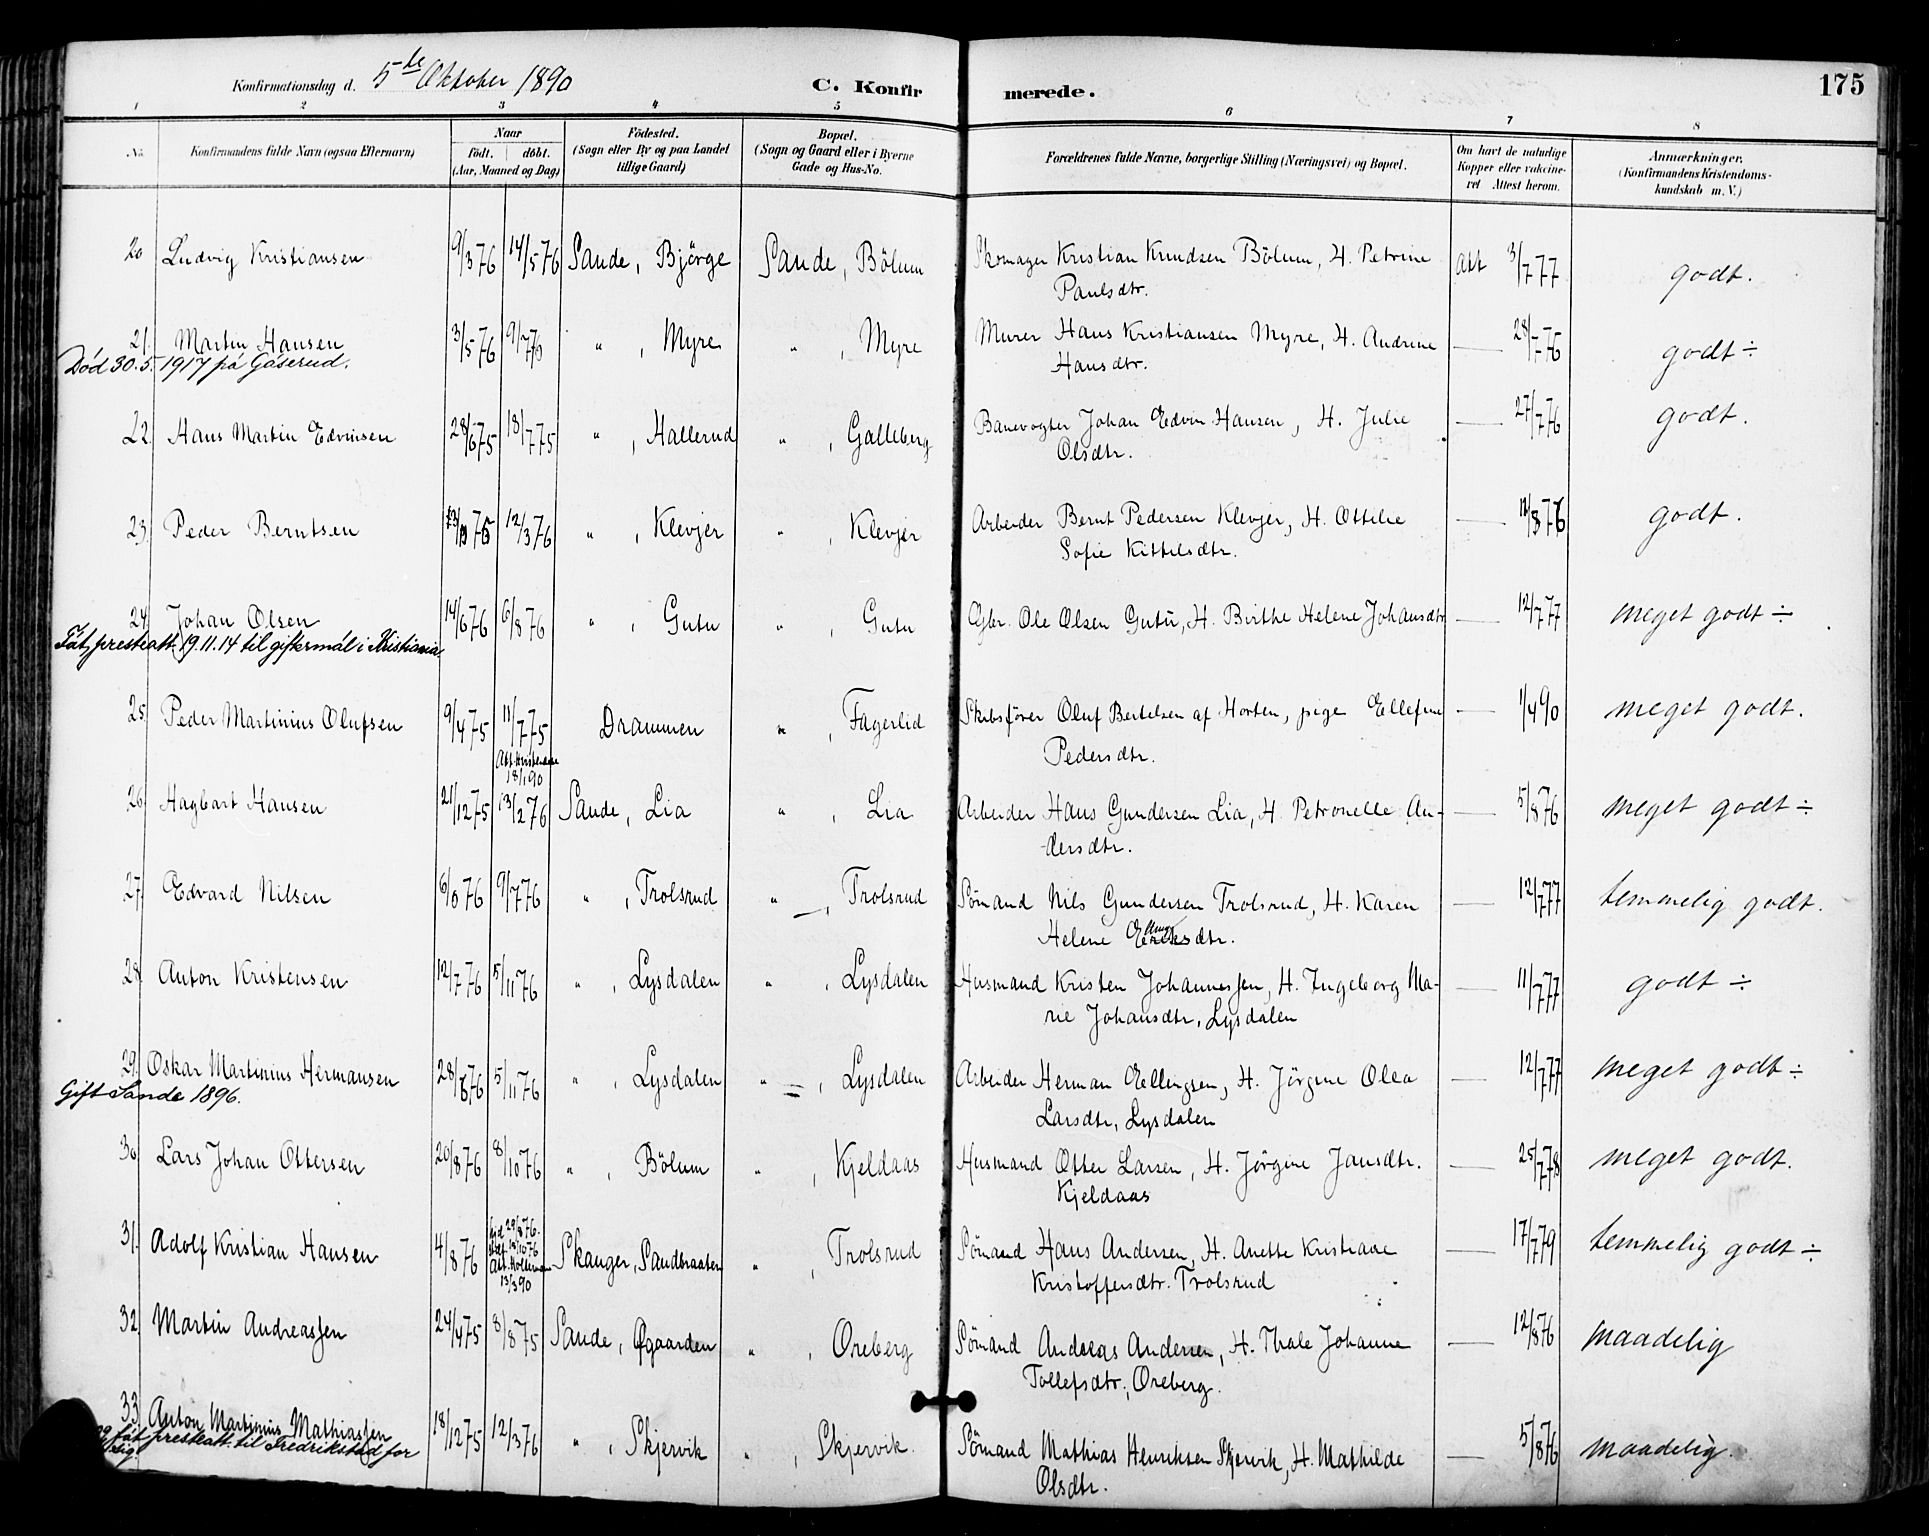 Konfirmationsdag d. 5te Oktober 1890 C. Konfirmerede. 175
1 2 3 4 5 6 7 8
No. Konfirmandens fulde Navn (ogsaa Efternavn) Naar födt. döbt. (Aar, Maaned og Dag) Födested. (Sogn eller By og paa Landet tillige Gaard) Bopæl. (Sogn og Gaard eller i Byerne Gade og Hus-No. Forældrenes fulde Navne, borgerlige Stilling (Næringsvei) og Bopæl. Om havt de naturlige Kopper eller vaccineret Attest herom. Anmærkninger. (Konfirmandens Kristendomskundskab m. V.)
20 Ludvig Kristiansen 9/3 76 14/5 76 Sande, Bjørge Sande, Bölum Skomager Kristian Knudsen Bölum, H. Petrine Att 3/7 77 godt.
Paulsdtr.
21. Martin Hansen 3/5 76 9/7 76 " , Myre " , Myre Murer Hans Kristiansen Myre, H. Andrine — 28/7 76 godt ÷
Død 30.5.1917 på Gåserud. Hansdtr.
22. Hans Martin Edvinsen 28/6 75 18/7 75 " , Hallerud " , Galleberg Banevogter Johan Edvin Hansen, H. Julie — 27/7 76 godt.
Olsdtr.
23. Peder Berntsen 12/3 76 " , Klevjer " , Klevjer Arbeider Bernt Pedersen Klevjer, H. Ottilie — godt.
Sofie Kittelsdtr.
24. Johan Olsen 14/6 76 6/8 76 " , Gutu " , Gutu Gbr. Ole Olsen Gutu, H. Birthe Helene Johansdtr — 12/7 77 meget godt ÷
Fåt presteatt. 19.11.14 til giftermål i Kristiania.
25. Peder Martinius Olufsen 9/4 75 11/7 75 Drammen " , Fagerlid Skibsfører Oluf Bertelsen af Horten, pige Ellefine — 1/4 90 meget godt.
18/1 90 Pedersdtr.
26. Hagbart Hansen 21/12 75 13/2 76 Sande, Lia " , Lia Arbeider Hans Gundersen Lia, H. Petronelle An- — 5/8 76 meget godt ÷
dersdtr.
27. Edvard Nilsen 9/7 76 " , Trolsrud " , Trolsrud Sömand Nils Gundersen Trolsrud, H. Karen — 12/7 77 temmelig godt.
Helene
28. Anton Kristensen 12/7 76 5/11 76 " , Lysdalen " , Lysdalen Husmand Kristen Johannessen, H. Ingeborg Ma- — 11/7 77 godt ÷
rie Johansdtr, Lysdalen
29. Oskar Martinius Hermansen 5/11 76 " , Lysdalen " , Lysdalen Arbeider Herman Ellingsen, H. Jörgine Olea — 12/7 77 meget godt ÷
Gift Sande 1896. Larsdtr, Lysdalen
30. Lars Johan Ottersen 20/8 76 8/10 76 " , Bölum " , Kjeldaas Husmand Otter Larsen, H. Jörgine Jansdtr. — 25/7 78 meget godt.
Kjeldaas
31. Adolf Kristian Hansen 4/8 76 29/8 76. Skauger, Sandbraaten " , Trolsrud Sömand Hans Andersen, H. Anette Kristiane — 17/7 79 temmelig godt ÷
13/3 90 Kristoffersdtr. Trolsrud
32. Martin Andreassen 24/4 75 8/8 75 Sande, Øgaarden " , Oreberg Sömand Andreas Andersen, H. Thale Johanne — 12/8 76 maadelig
Tollefsdtr., Oreberg.
33. Anton Martinius Mathiassen 18/12 75 12/3 76 " , Skjervik " , Skjervik. Sömand Mathias Henriksen Skjervik, H. Mathilde — 5/8 76 maadelig.
fåt presteatt. til Fredrikstad for Olsdtr.